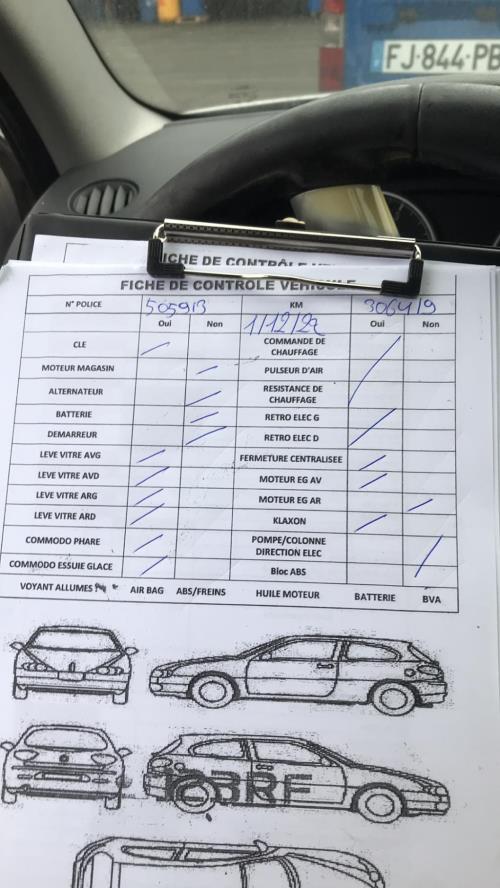 FJ-844-PB
FICHE DE CONTRÔLE VE
FICHE DE CONTROLE VEHICULE
N° POLICE 505913 KM 306419
Oui Non 1/12/22 Oui Non
CLE COMMANDE DE CHAUFFAGE
MOTEUR MAGASIN PULSEUR D'AIR
ALTERNATEUR RESISTANCE DE CHAUFFAGE
BATTERIE RETRO ELEC G
DEMARREUR RETRO ELEC D
LEVE VITRE AVG FERMETURE CENTRALISEE
LEVE VITRE AVD MOTEUR EG AV
LEVE VITRE ARG MOTEUR EG AR
LEVE VITRE ARD KLAXON
COMMODO PHARE POMPE/COLONNE DIRECTION ELEC
COMMODO ESSUIE GLACE Bloc ABS
VOYANT ALLUMES AIR BAG ABS/FREINS HUILE MOTEUR BATTERIE BVA